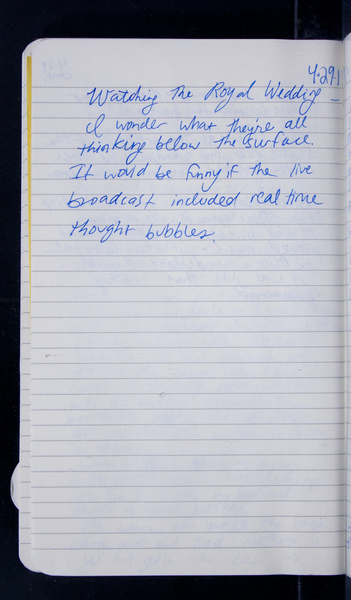 4.29.1
Watching the Royal Wedding –
I wonder what they're all
thinking below the surface.
It would be funny if the live
broadcast included real time
thought bubbles.